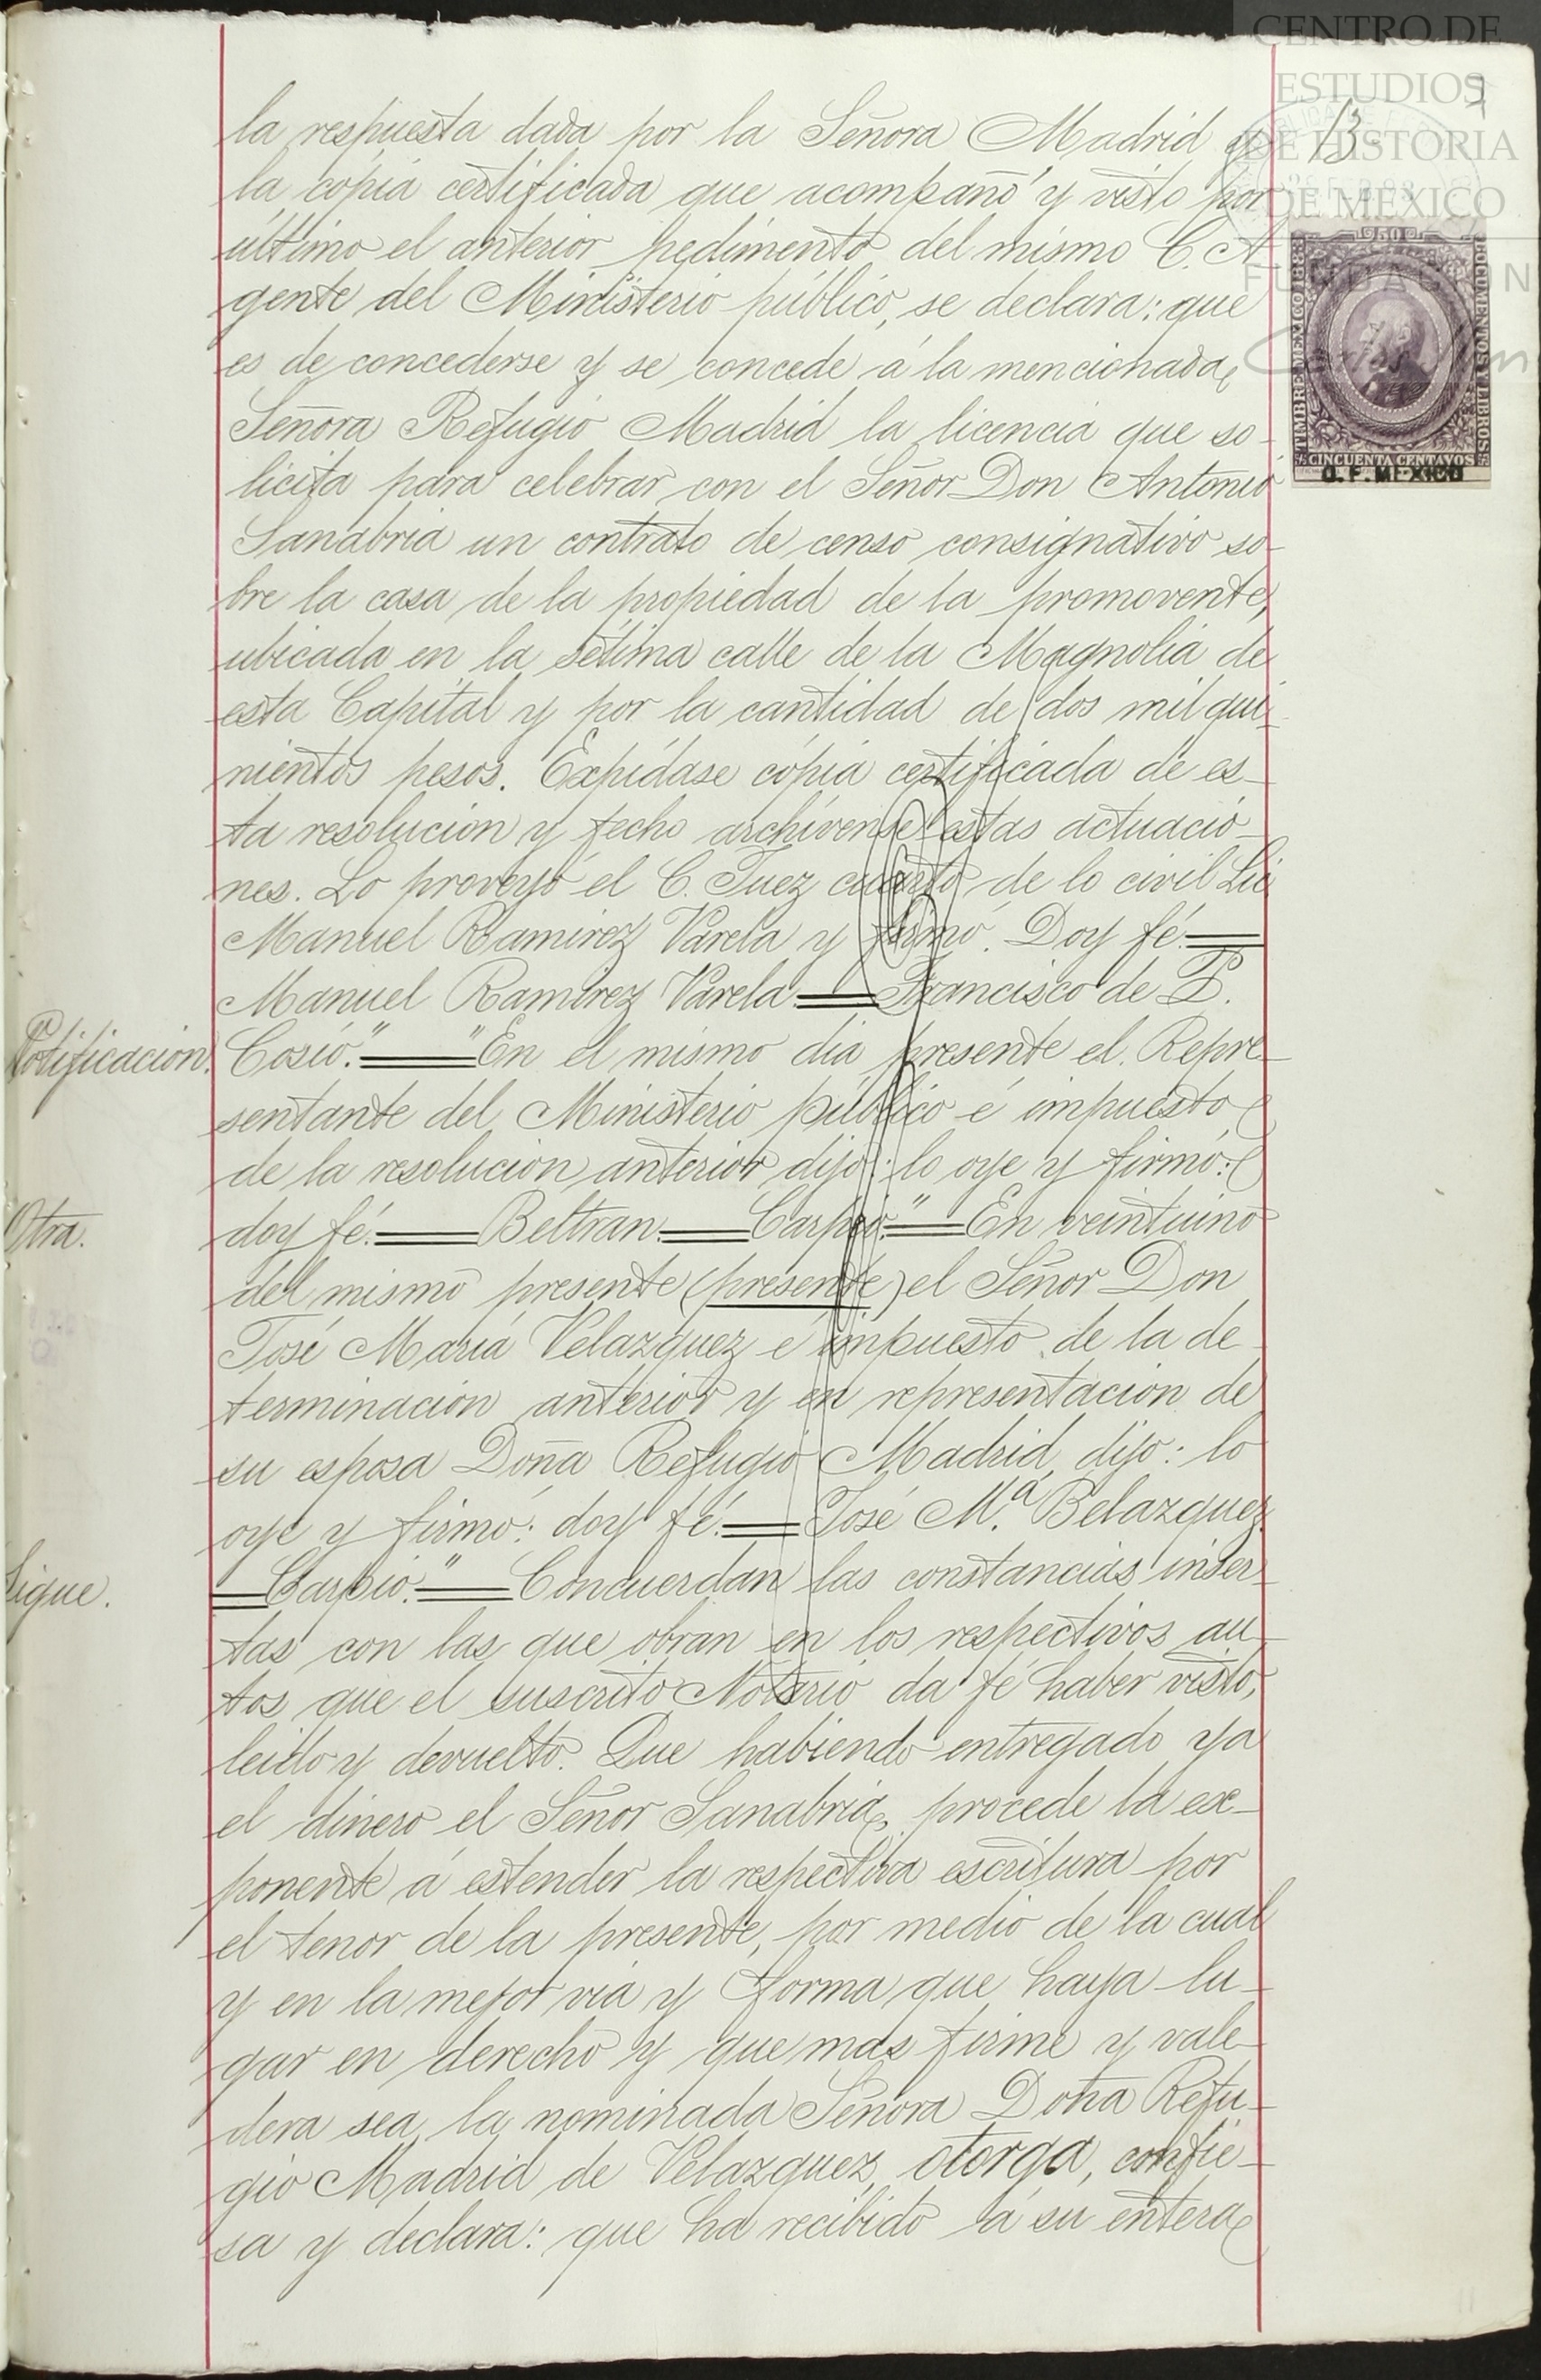 CENTRO DE
ESTUDIOS
DE HISTORIA
DE MÉXICO
FUNDACIÓN
13
50
TIMBRE MEXICO 1888
DOCUMENTOS Y LIBROS
CINCUENTA CENTAVOS
D. F. MEXICO
la respuesta dada por la Señora Madrid y
la cópia certificada que acompañó y visto por
último el anterior pedimento del mismo C. A
gente del Ministerio público, se declara: que
es de concederse y se concede á la mencionada
Señora Refugio Madrid la licencia que so-
licita para celebrar con el Señor Don Antonio
Sanabria un contrato de censo consignativo so-
bre la casa de la propiedad de la promovente,
ubicada en la sétima calle de la Magnolia de
esta Capital y por la cantidad de dos mil qui-
nientos pesos. Expídase cópia certificada de es-
ta resolucion y fecho archívense estas actuacio-
nes. Lo proveyó el C. Juez cuarto de lo civil Lic.
Manuel Ramirez Varela y firmó. Doy fé.=
Manuel Ramirez Varela.=Francisco de P.
Notificacion. Cosio."="En el mismo dia presente el Repre-
sentante del Ministerio público é impuesto
de la resolucion anterior dijo: lo oye y firmó:
Otra. doy fé.=Beltran.=Carpio."=En veintiuno
del mismo presente (presente) el Señor Don
José María Velazquez é impuesto de la de-
terminacion anterior y en representacion de
su esposa Doña Refugio Madrid, dijo: lo
oye y firmó: doy fé.=José M.ª Belazquez
Sigue. =Carpio."=Concuerdan las constancias inser-
tas con las que obran en los respectivos au-
tos que el suscrito Notario da fé haber visto,
leido y devuelto. Que habiendo entregado ya
el dinero el Señor Sanabria, procede la ex-
ponente á estender la respectiva escritura por
el tenor de la presente, por medio de la cual
y en la mejor via y forma que haya lu-
gar en derecho y que mas firme y vale-
dera sea, la nominada Señora Doña Refu-
gio Madrid de Velazquez, otorga, confie-
sa y declara: que ha recibido á su entera